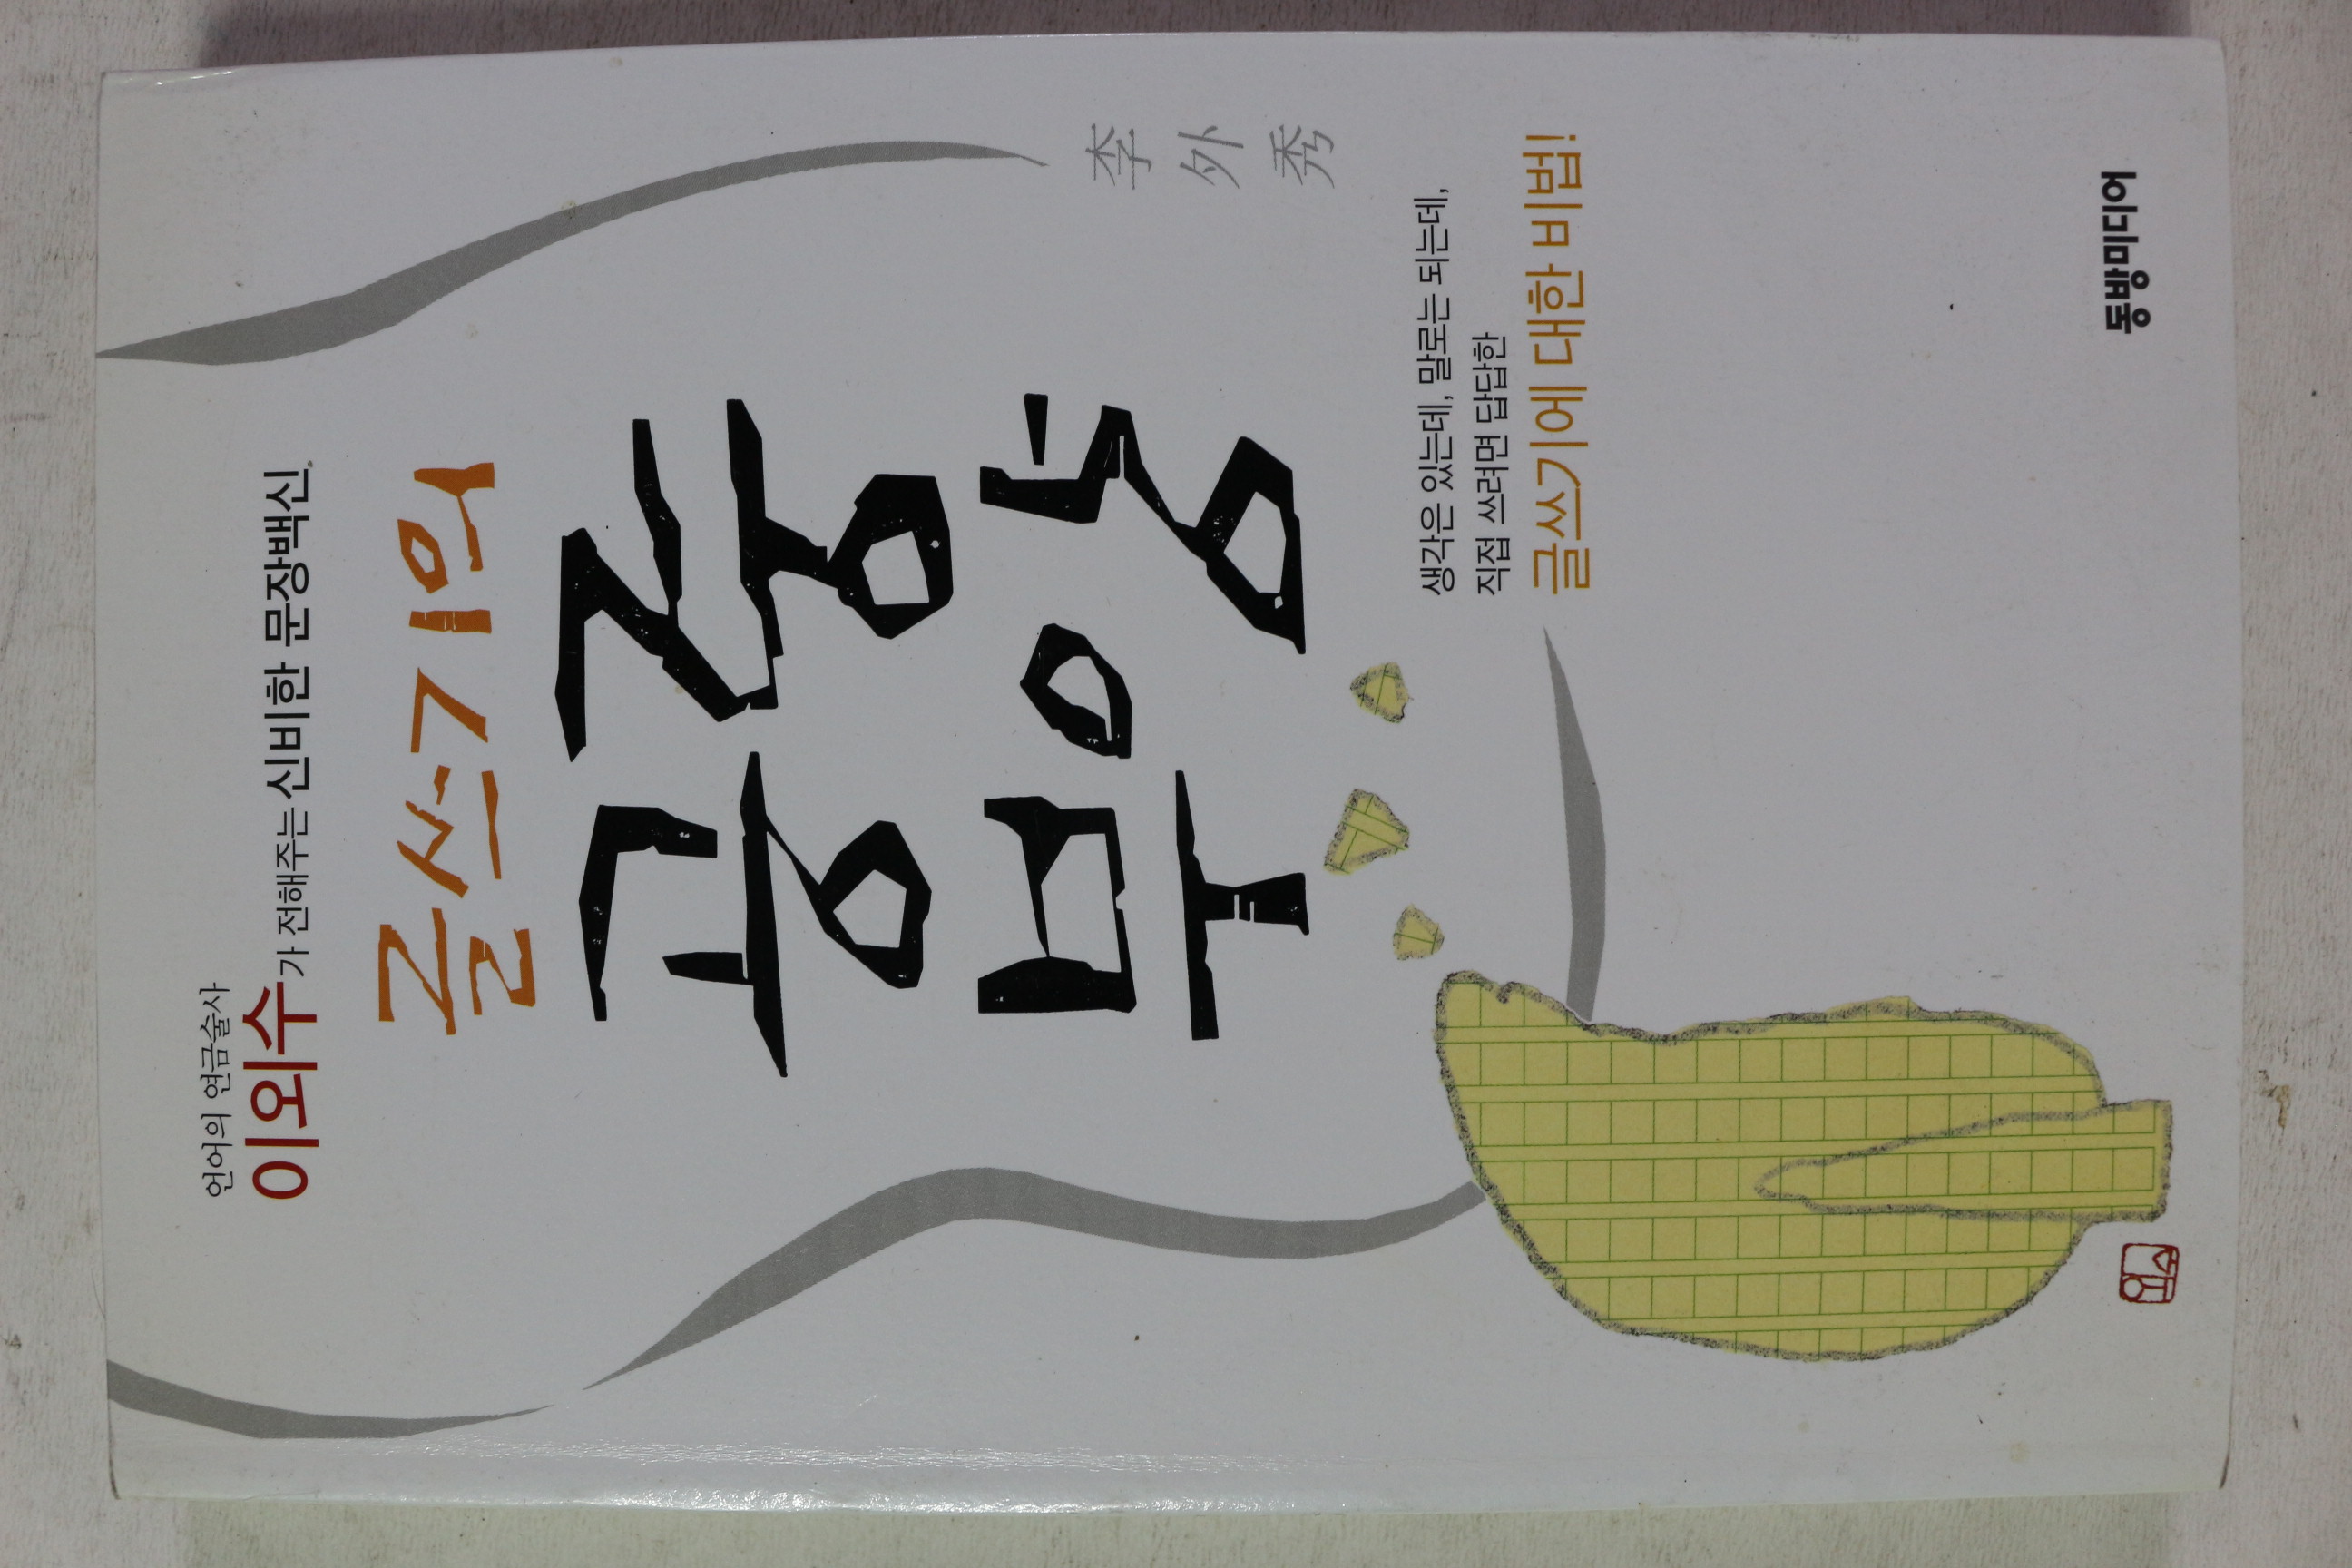 언어의 연금술사
이외수가 전해주는 신비한 문장백신
글쓰기의
공중
부양
李外秀
생각은 있는데, 말로는 되는데,
직접 쓰려면 답답한
글쓰기에 대한 비법!
동방미디어